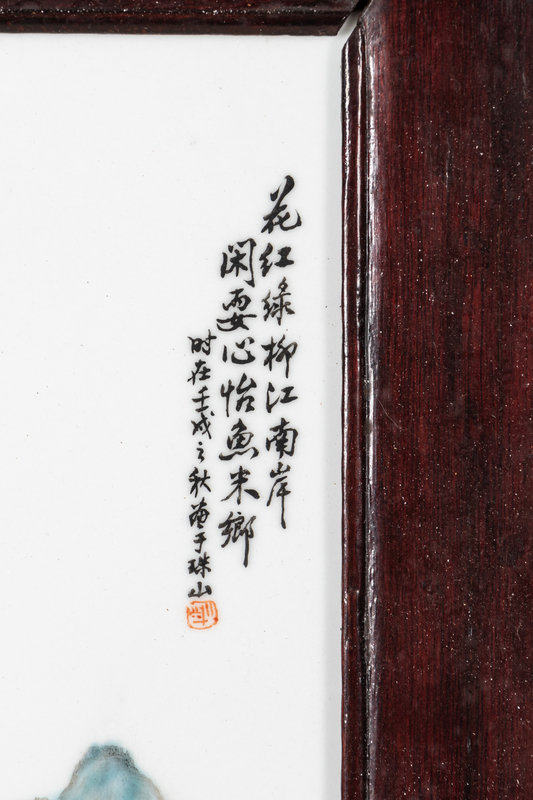 花红綠柳江南岸
闲耍心怡魚米鄉
时在壬戌之秋画于珠山